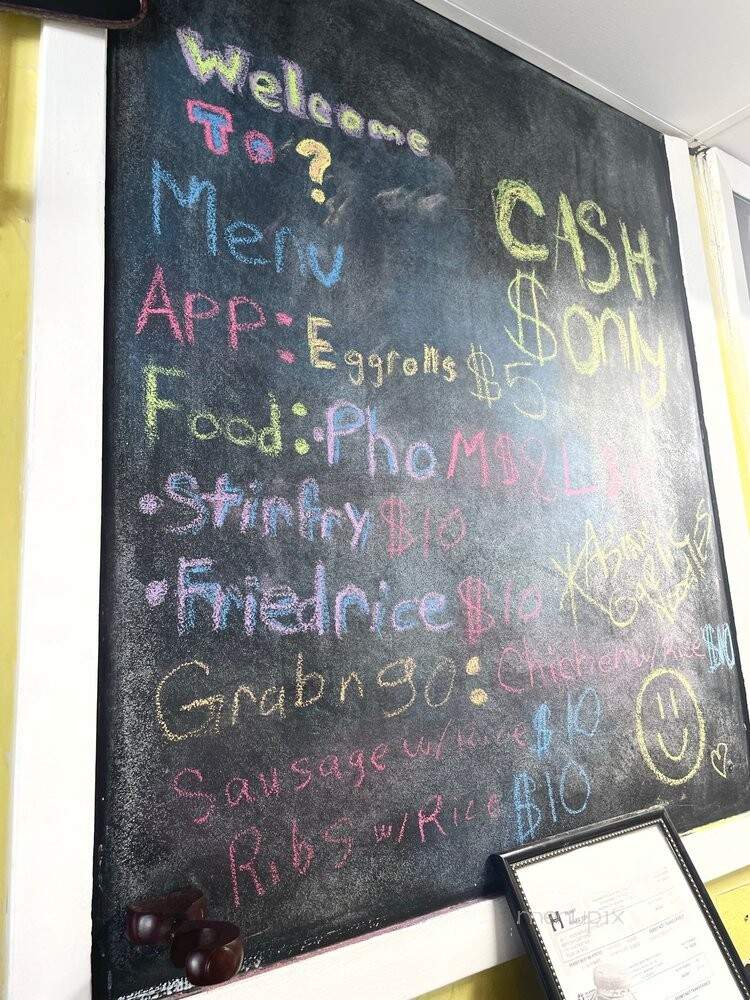 Welcome
To ?
Menu
CASH
$ only
APP: Eggrolls $5
Food: • Pho M $8 L
• Stirfry $10
• Friedrice $10
Grab n go: Chicken w/ Rice $10
Sausage w/ Rice $10
Ribs w/ Rice $10
menupix